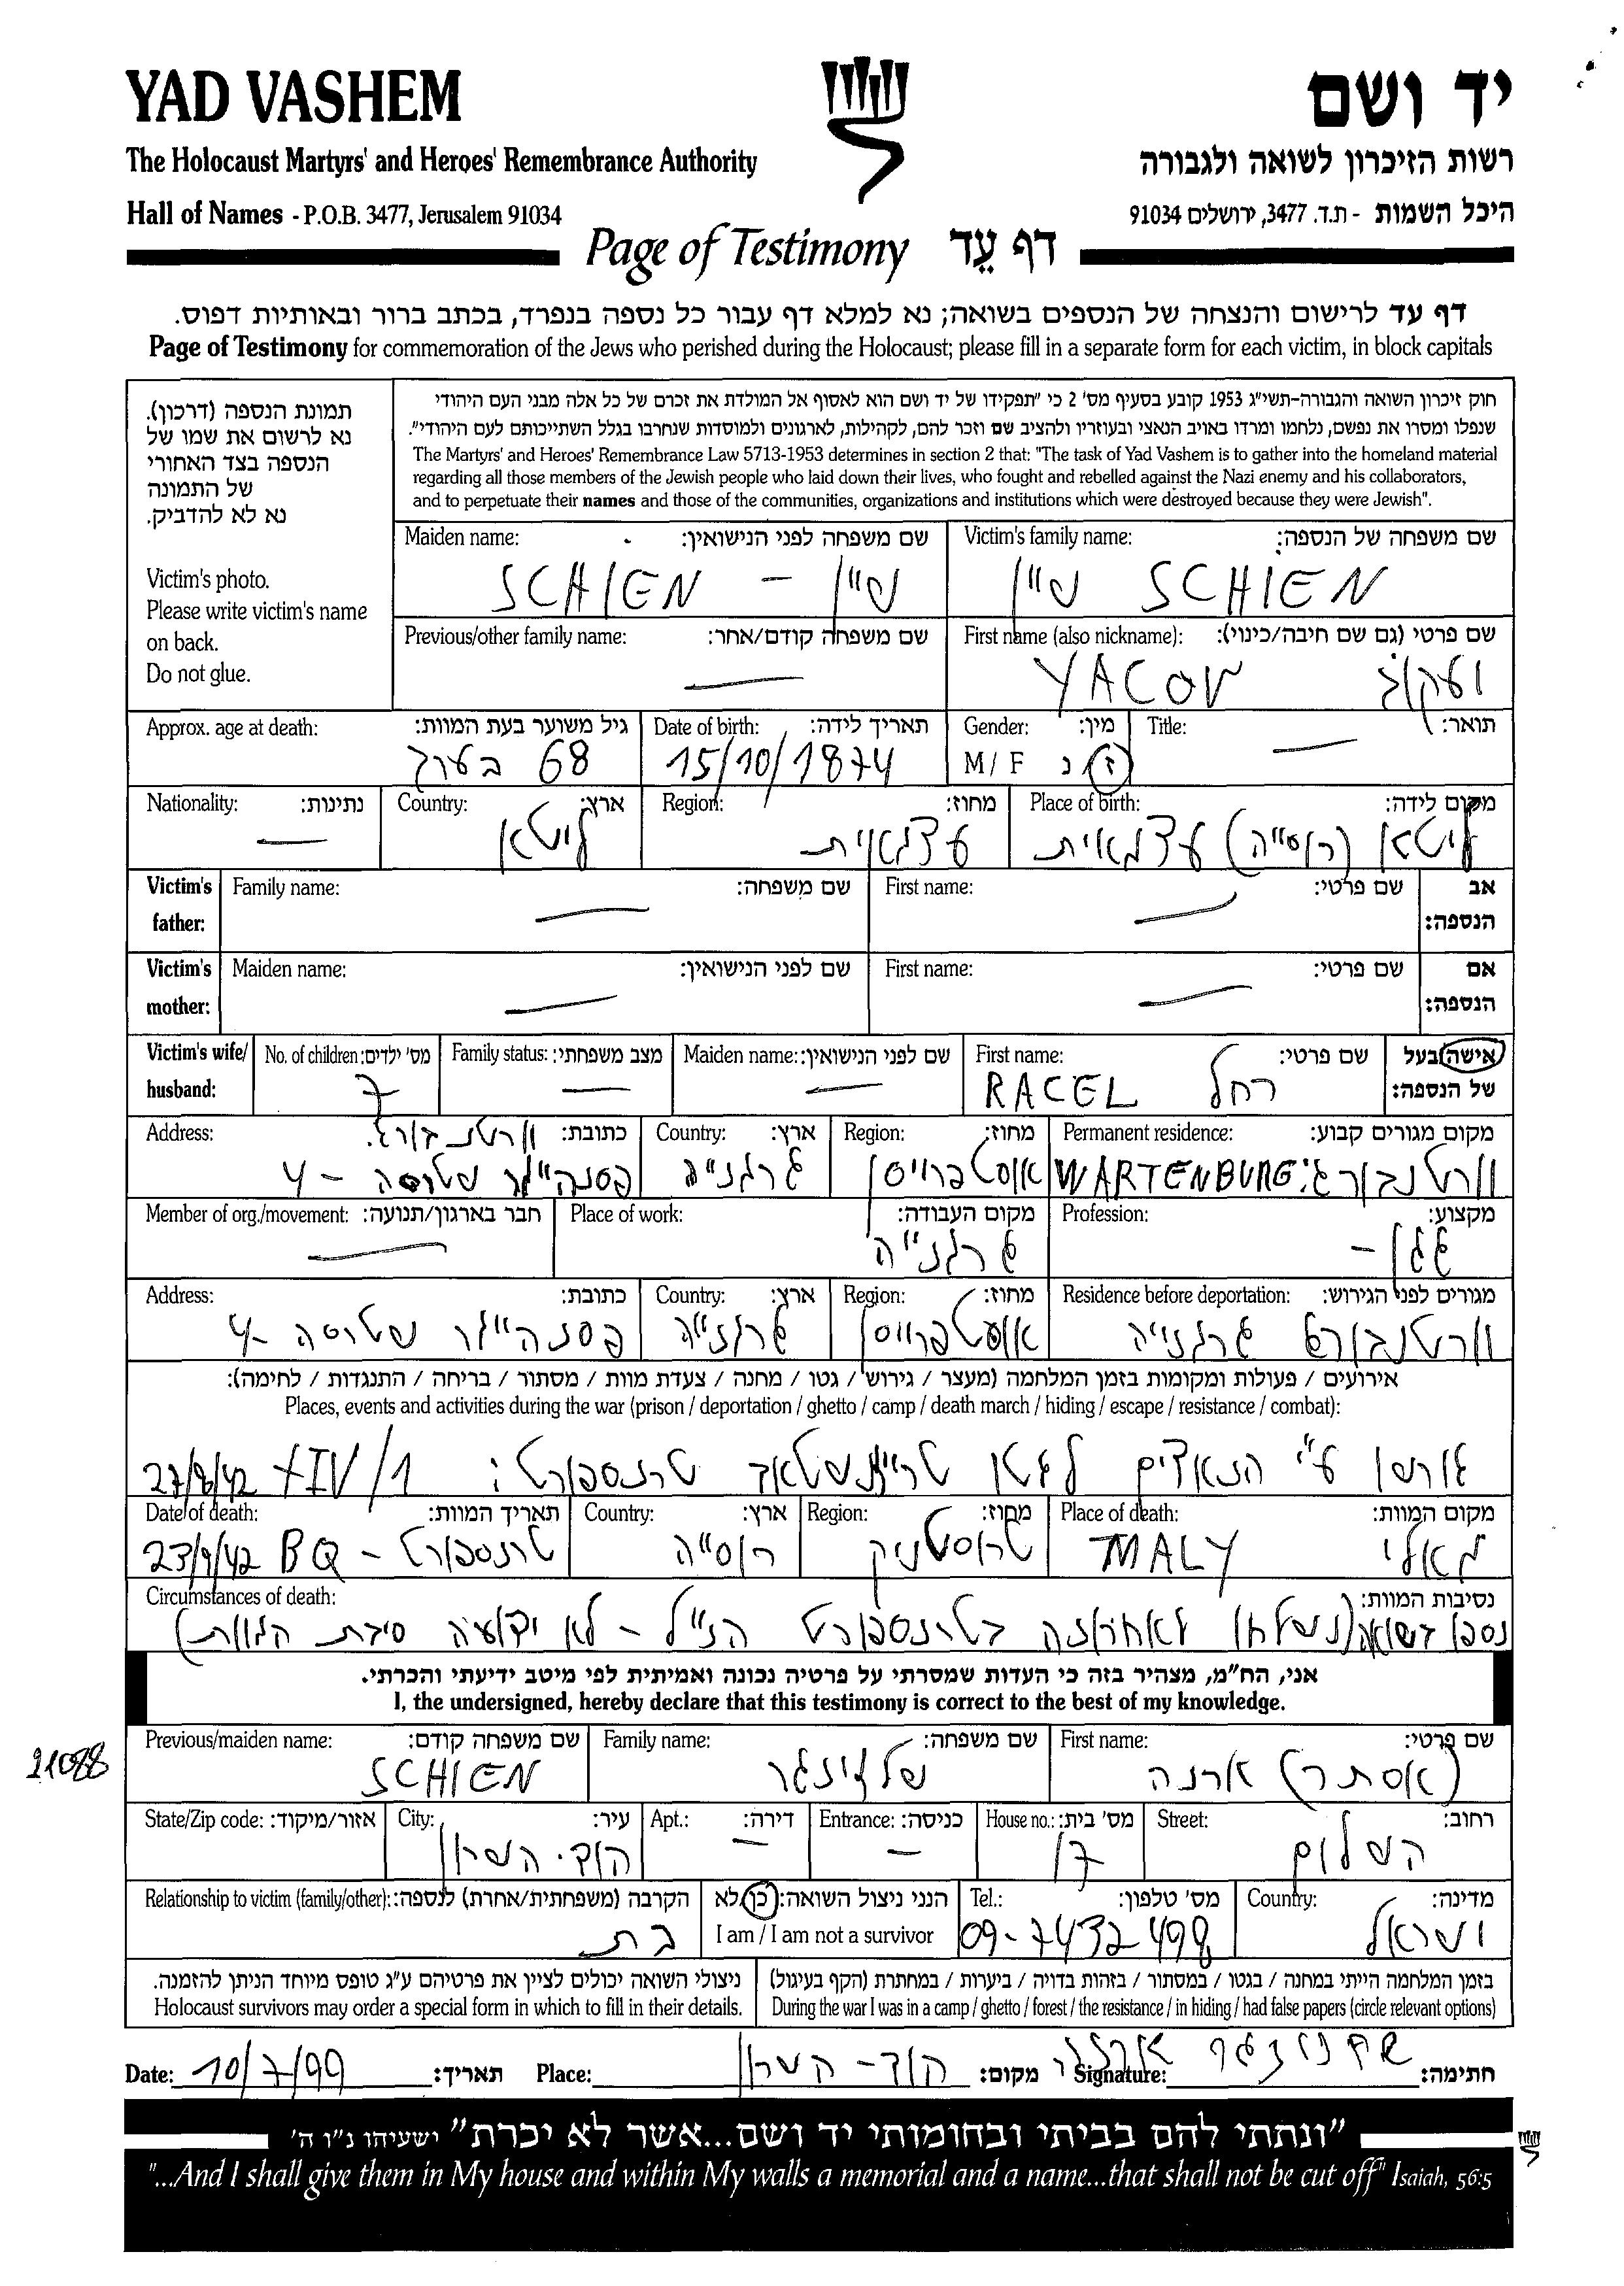 YAD VASHEM
יד ושם
The Holocaust Martyrs' and Heroes' Remembrance Authority
רשות הזיכרון לשואה ולגבורה
Hall of Names - P.O.B. 3477, Jerusalem 91034
היכל השמות - ת.ד. 3477, ירושלים 91034
Page of Testimony דף עֵד
דף עד לרישום והנצחה של הנספים בשואה; נא למלא דף עבור כל נספה בנפרד, בכתב ברור ובאותיות דפוס.
Page of Testimony for commemoration of the Jews who perished during the Holocaust; please fill in a separate form for each victim, in block capitals
תמונת הנספה (דרכון).
נא לרשום את שמו של
הנספה בצד האחורי
של התמונה
נא לא להדביק.
Victim's photo.
Please write victim's name
on back.
Do not glue.
חוק זיכרון השואה והגבורה-תשי"ג 1953 קובע בסעיף מס' 2 כי "תפקידו של יד ושם הוא לאסוף אל המולדת את זכרם של כל אלה מבני העם היהודי
שנפלו ומסרו את נפשם, נלחמו ומרדו באויב הנאצי ובעוזריו ולהציב שם וזכר להם, לקהילות, לארגונים ולמוסדות שנחרבו בגלל השתייכותם לעם היהודי".
The Martyrs' and Heroes' Remembrance Law 5713-1953 determines in section 2 that: "The task of Yad Vashem is to gather into the homeland material
regarding all those members of the Jewish people who laid down their lives, who fought and rebelled against the Nazi enemy and his collaborators,
and to perpetuate their names and those of the communities, organizations and institutions which were destroyed because they were Jewish".
Victim's family name: שם משפחה של הנספה:
שיין SCHIEN
Maiden name: שם משפחה לפני הנישואין:
שיין - SCHIEN
First name (also nickname): שם פרטי (גם שם חיבה/כינוי):
יעקוב YACOV
Previous/other family name: שם משפחה קודם/אחר:
—
Title: תואר:
—
Gender: מין:
M / F ז נ
Date of birth: תאריך לידה:
15/10/1874
Approx. age at death: גיל משוער בעת המוות:
68 בערך
Place of birth: מקום לידה:
ליטא (רוסיה)
Region: מחוז:
Country: ארץ:
ליטא
Nationality: נתינות:
—
Victim's father: אב הנספה:
First name: שם פרטי:
—
Family name: שם משפחה:
—
Victim's mother: אם הנספה:
First name: שם פרטי:
—
Maiden name: שם לפני הנישואין:
—
Victim's wife/ husband: אישה/בעל של הנספה:
First name: שם פרטי:
רחל RACEL
Maiden name: שם לפני הנישואין:
—
Family status: מצב משפחתי:
—
No. of children: מס' ילדים:
7
Permanent residence: מקום מגורים קבוע:
וורטנבורג: WARTENBURG
Region: מחוז:
אוסטפרויסן
Country: ארץ:
גרמנייה
Address: כתובת:
שטרסה - 4
Profession: מקצוע:
Place of work: מקום העבודה:
גרמנייה
Member of org./movement: חבר בארגון/תנועה:
—
Residence before deportation: מגורים לפני הגירוש:
וורטנבורג גרמנייה
Region: מחוז:
אוסטפרויסן
Country: ארץ:
גרמנייה
Address: כתובת:
שטרסה -4
אירועים / פעולות ומקומות בזמן המלחמה (מעצר / גירוש / גטו / מחנה / צעדת מוות / מסתור / בריחה / התנגדות / לחימה):
Places, events and activities during the war (prison / deportation / ghetto / camp / death march / hiding / escape / resistance / combat):
גורשו ע"י הנאצים לגטו טרייזנשטאד טרנספורט: XIV/1 27/8/42
Place of death: מקום המוות:
מאלי MALY
Region: מחוז:
טרוסטניק
Country: ארץ:
רוסייה
Date of death: תאריך המוות:
טרנספורט - BQ 23/9/42
Circumstances of death: נסיבות המוות:
נספו בשואה (נשלחו לאחרונה בטרנספורט הנ"ל - לא ידועה סיבת המוות)
אני, הח"מ, מצהיר בזה כי העדות שמסרתי על פרטיה נכונה ואמיתית לפי מיטב ידיעתי והכרתי.
I, the undersigned, hereby declare that this testimony is correct to the best of my knowledge.
21088
First name: שם פרטי:
(אסתר) ארנה
Family name: שם משפחה:
שלזינגר
Previous/maiden name: שם משפחה קודם:
SCHIEN
Street: רחוב:
השלום
House no.: מס' בית:
17
Entrance: כניסה:
-
Apt.: דירה:
-
City: עיר:
הוד-השרון
State/Zip code: אזור/מיקוד:
Country: מדינה:
ישראל
Tel.: מס' טלפון:
09-7432498
הנני ניצול השואה: כן/לא
I am / I am not a survivor
Relationship to victim (family/other): הקרבה (משפחתית/אחרת) לנספה:
בת
בזמן המלחמה הייתי במחנה / בגטו / במסתור / בזהות בדויה / ביערות / במחתרת (הקף בעיגול)
During the war I was in a camp / ghetto / forest / the resistance / in hiding / had false papers (circle relevant options)
ניצולי השואה יכולים לציין את פרטיהם ע"ג טופס מיוחד הניתן להזמנה.
Holocaust survivors may order a special form in which to fill in their details.
Date: 10/7/99 תאריך: Place: הוד-השרון מקום: Signature: שלזינגר ארנה חתימה:
"ונתתי להם בביתי ובחומותי יד ושם...אשר לא יכרת" ישעיהו נ"ו ה'
"...And I shall give them in My house and within My walls a memorial and a name...that shall not be cut off" Isaiah, 56:5